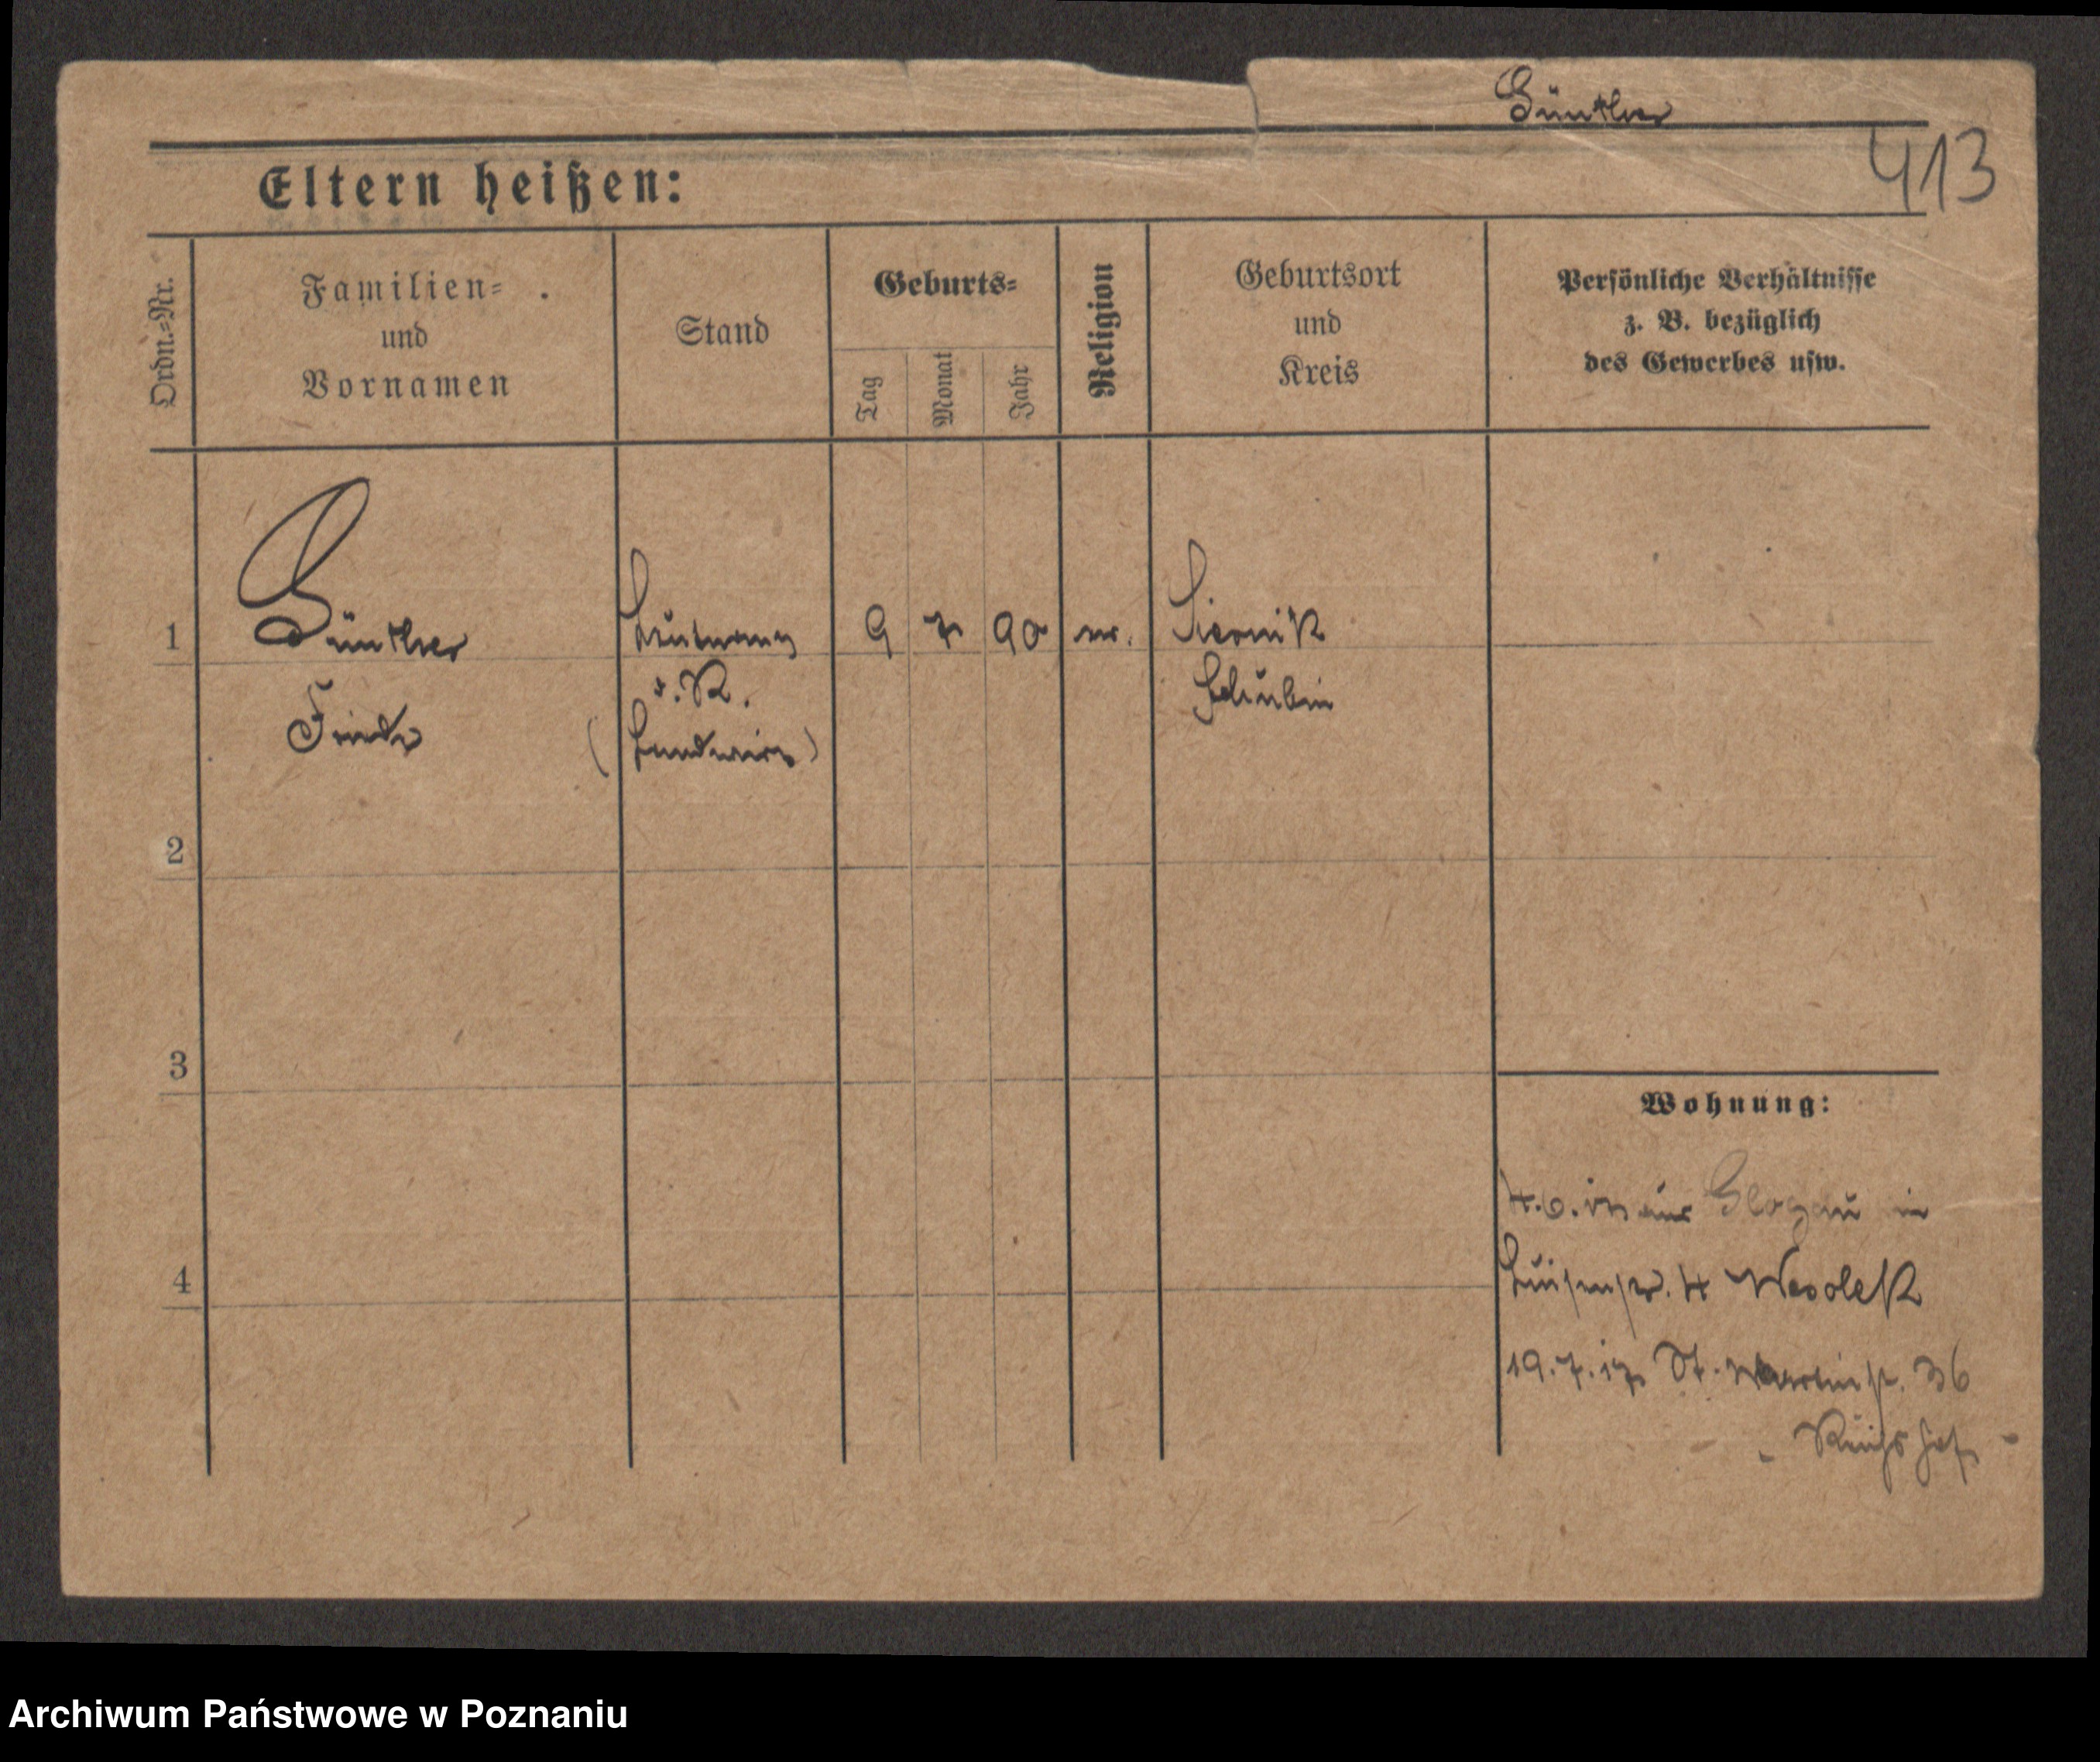 Günther
413
Eltern heißen:
Ordn.=Nr.
Familien=
und
Vornamen
Stand
Geburts=
Tag
Monat
Jahr
Religion
Geburtsort
und
Kreis
Persönliche Verhältnisse
z. B. bezüglich
des Gewerbes usw.
1
Günther
Leutnant
9
7
90
ev.
Siernik
d. R.
Schubin
(Landwirt)
2
3
4
Wohnung:
aus Glogau in
Luisenstr. 4 Wesolek
19.7.17 St. Martinstr. 36
- Reichshof -
Archiwum Państwowe w Poznaniu